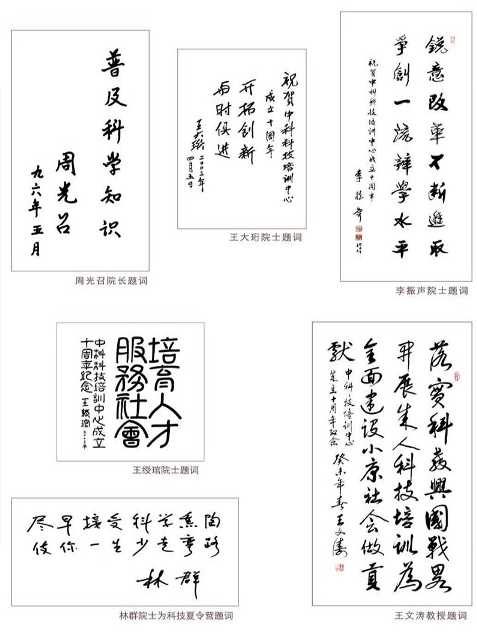 普及科学知识
周光召
九六年五月
周光召院长题词
祝贺中科科技培训中心
成立十周年
开拓创新
与时俱进
王大珩
二〇〇三年
四月五日
王大珩院士题词
銳意改革不断進取
争創一流辦学水平
祝贺中科科技培训中心成立十周年
李振声
李振声院士题词
培育人才
服務社會
中科科技培训中心成立
十周年纪念 王绶琯
王绶琯院士题词
尽早接受科学熏陶
使你一生少走弯路
林群
林群院士为科技夏令营题词
落實科教興國戰畧
開展成人科技培训為
全面建设小康社会做貢
献
中科技培训中心
成立十周年纪念
癸未年春王文涛
王文涛教授题词